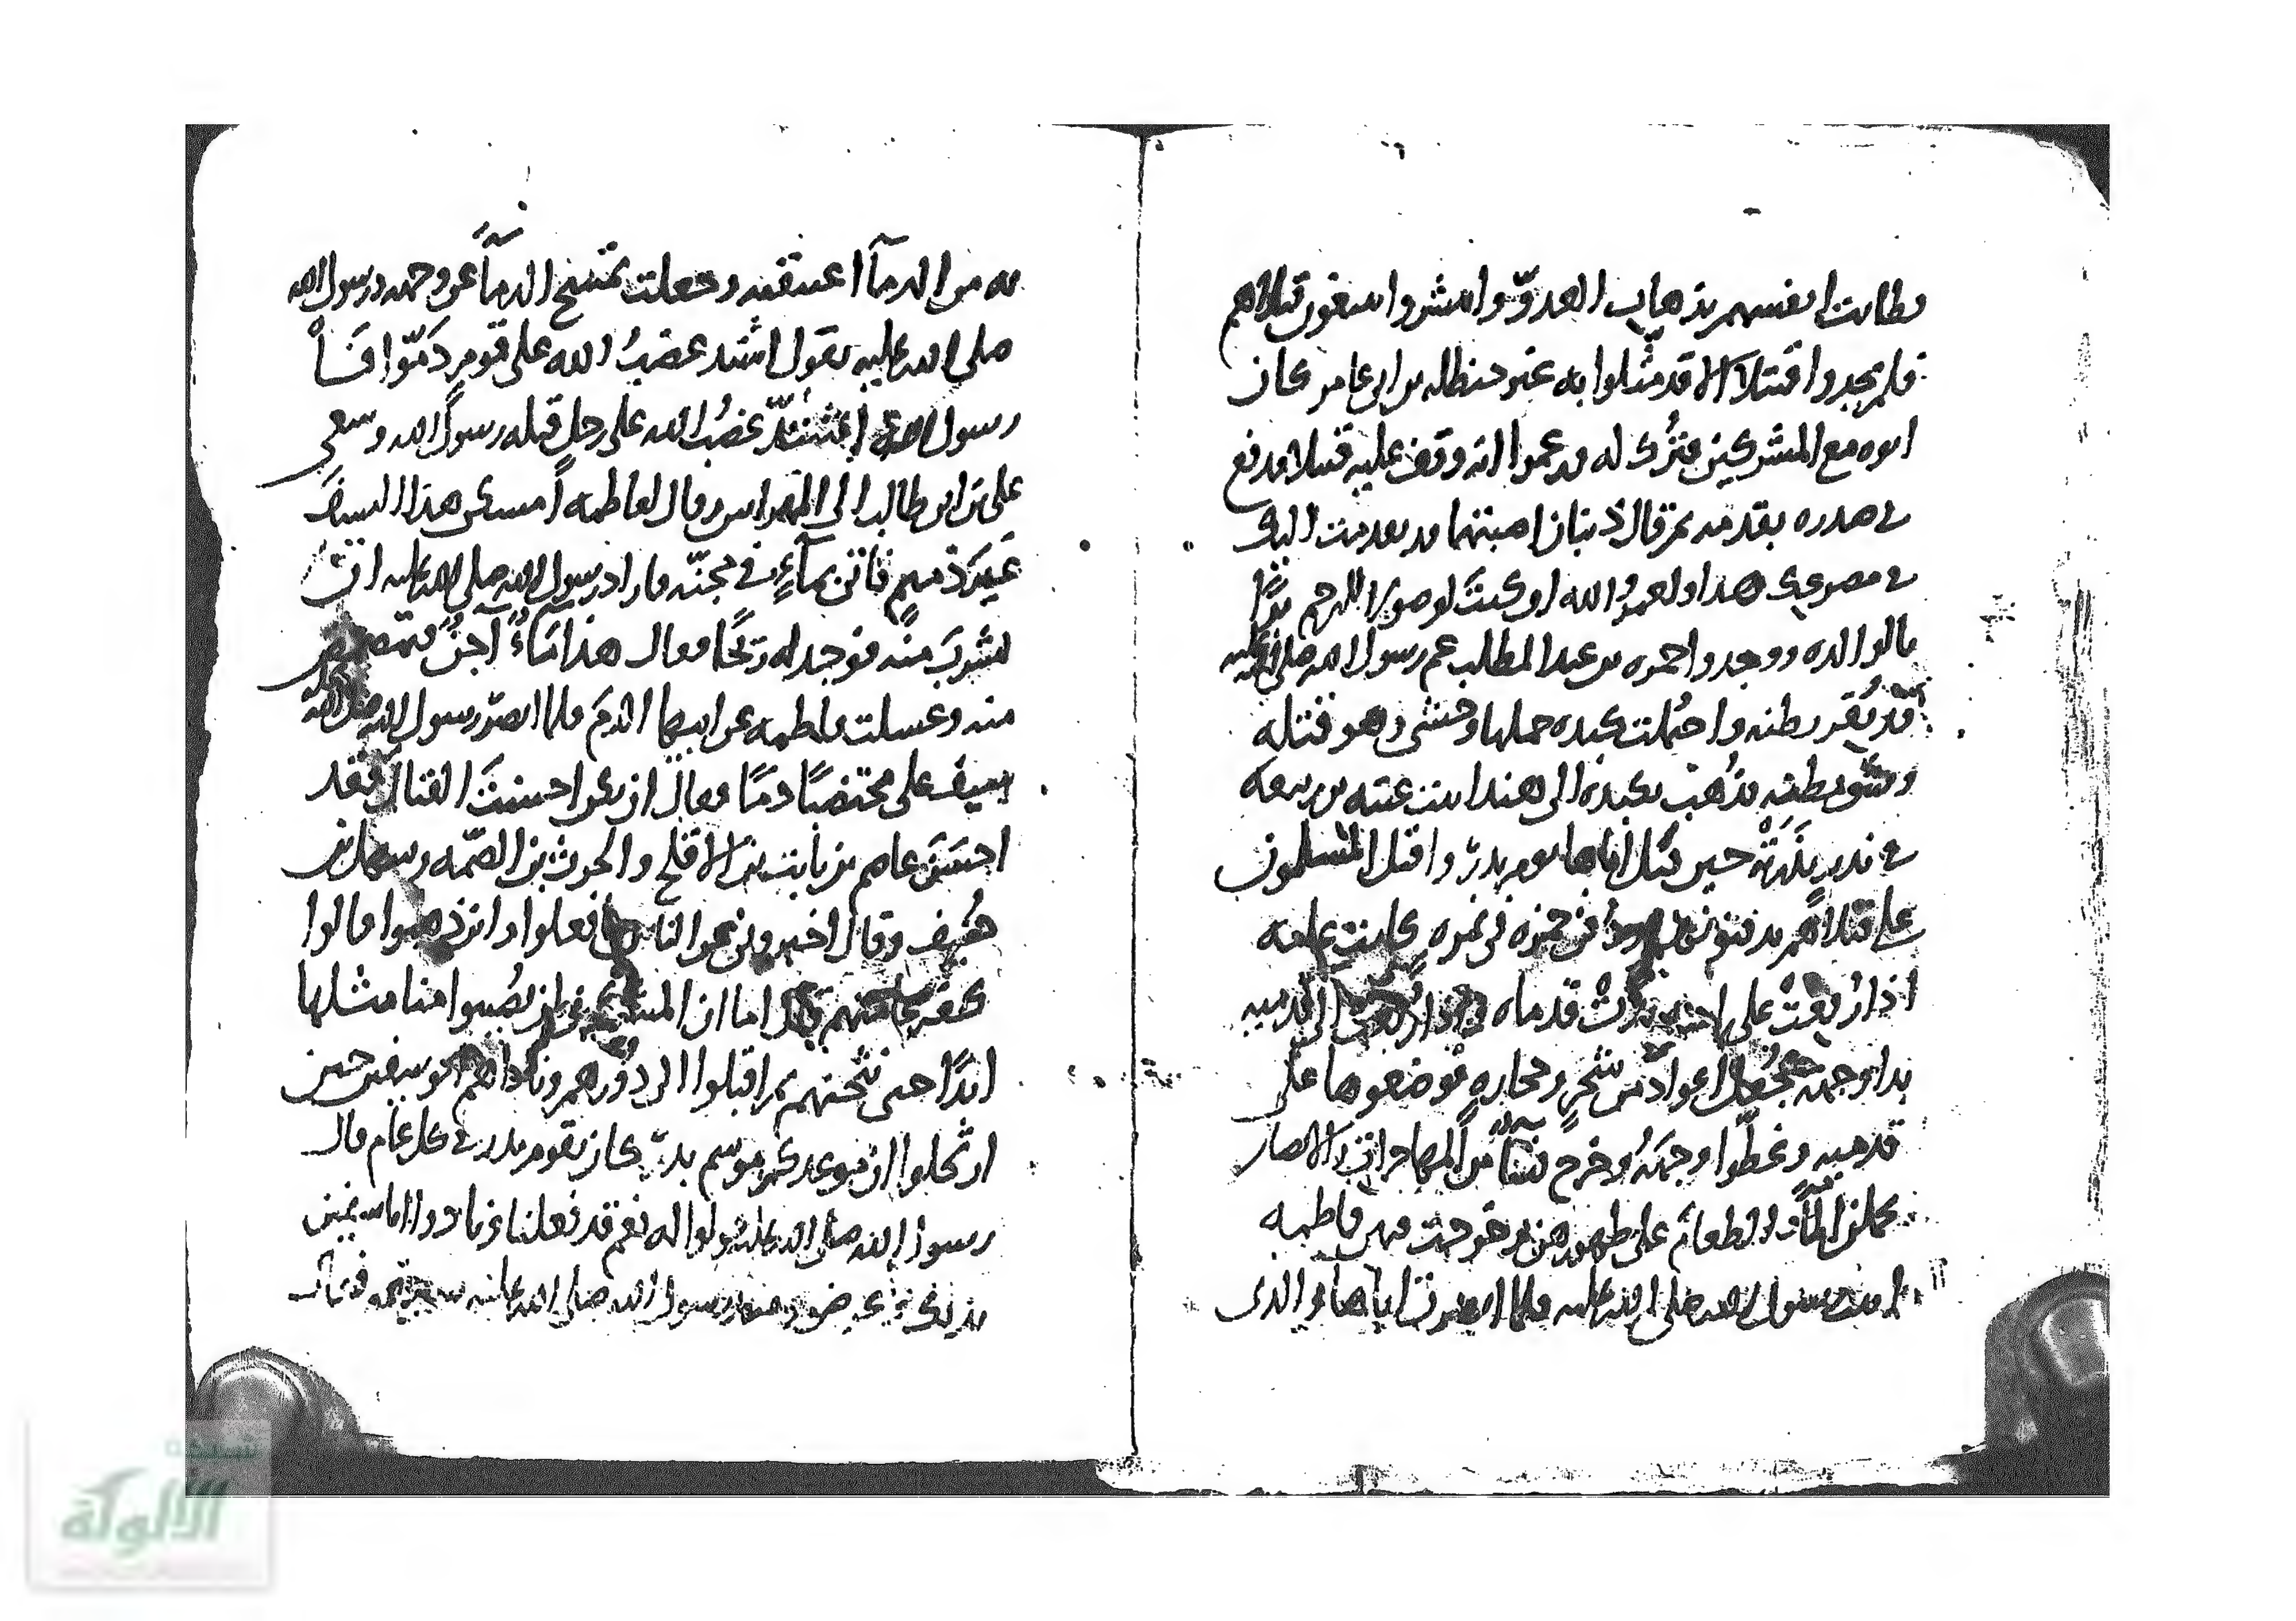 وطابت انفسهم بذهاب العدوّ وانتشروا يبتغون قتلاهم
فلم يجدوا قتيلا الا قد مثّلوا به غير حنظله بن ابي عامر كان
ابوه مع المشركين فتُرك له وزعموا انه وقف عليه قتيلا فدفع
في صدره بقدمه ثم قال ذنبان اصبتهما قد تقدمت اليك
في مصرعك هذا ولعمرو الله ان كنت لوصولا للرحم برًّا
بالوالده ووجدوا حمزه بن عبد المطلب عم رسول الله صلى الله عليه
قد بُقر بطنه واحتُملت كبده حملها وحشي وهو قتله
وشق بطنه فذهب بكبده الى هند ابنت عتبه بن ربيعه
في نذر نذرته حين قتل اباها يوم بدر واقبل المسلمون
على قتلاهم يدفنونهم ودُفن حمزه في نمره كانت عليه
اذا رُفعت على بدت قدماه الى قدميه
بدا وجهه فجعل اعوادا من شجر وحجاره فوضعوها على
قدميه وغطّوا وجهَهُ وخرج نساءٌ من المهاجرات والانصار
يحملن الماء والطعام على ظهورهن وخرجت فيهن فاطمه
ابنت رسول الله صلى الله عليه فلما ابصرت اباها والذي
به من الدماء اعتنقته وجعلت تمسح الدماء عن وجهه ورسول الله
صلى الله عليه يقول اشتد غضبُ الله على قوم دَمّوا فَاْ
رسول الله اشتدّ غضبُ الله على رجل قتله رسولُ الله وسعى
علي بن ابي طالب الى المهراس وقال لفاطمه أمسكي هذا السيفَ
غَيرَ ذميمٍ فاتى بماءٍ في مجنّه فاراد رسول الله صلى الله عليه ان
يشربَ منه فوجد له ريحًا فقال هذا مَاءٌ آجنٌ فتمضمض
منه وغسلت فاطمه عن ابيها الدمَ فلما ابصر رسول الله صلى الله عليه
سيف علي مختضبًا دمًا فقال ان تكن احسنتَ القتال فقد
احسَنَ عاصم بن ثابت بن الاقلح والحرث بن الصّمه وسهل بن
حُنيف وقال اخبروني عن الناس ما فعلوا واين ذهبوا قالوا
كفر عامتهم قال اما ان المشركين لن يُصيبوا منا مثلها
ابدًا حتى نبيحهم ثم اقبلوا الى دُورهم وناداهم ابو سفين حين
ارتحلوا ان موعدكم موسم بدرٍ كان يقوم بدر في كل عام قال
رسول الله صلى الله عليه قولوا له نعم قد فعلنا فنادوا اباسفين
بذلك رسول الله صلى الله عليه